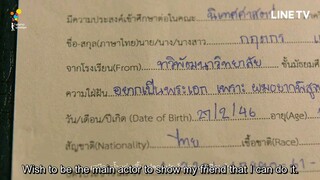 LINE TV
มีความประสงค์เข้าศึกษาต่อในคณะ นิเทศศาสตร์
ชื่อ-สกุล(ภาษาไทย)นาย/นาง/นางสาว กฤตกร
จากโรงเรียน(From) ทวีธิวัฒนาวิทยาลัย ชั้นมัธยมศึ
ความใฝ่ฝัน อยากเป็นพระเอก เพราะ ผมอยากพิสูจ
วัน/เดือน/ปีเกิด (Date of Birth) 27/2/46 อายุ(Age)
สัญชาติ(Nationality) ไทย เชื้อชาติ(Race)
Wish to be the main actor to show my friend that I can do it.